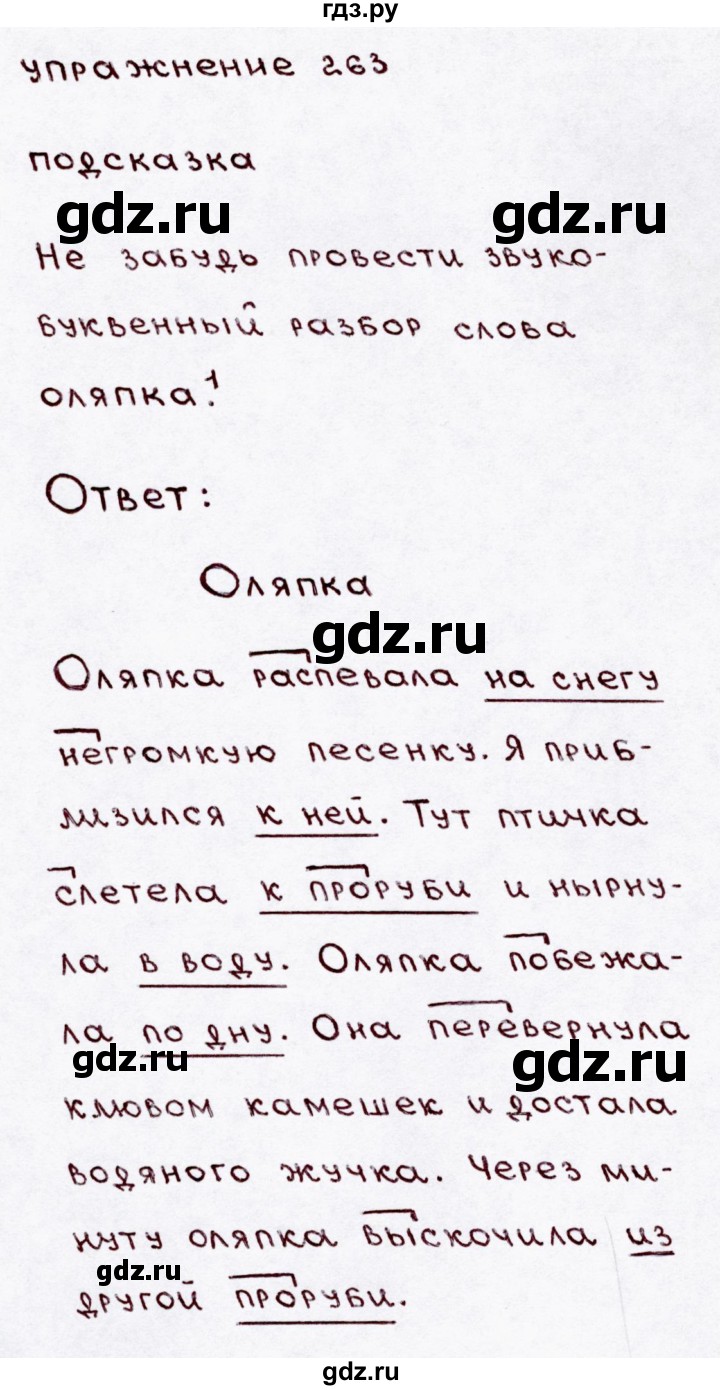 гдз.ру
упражнение 263
подсказка
gdz.ru gdz.ru
Не забудь провести звуко-
буквенный разбор слова
оляпка!¹
Ответ:
Оляпка
gdz.ru
Оляпка распевала на снегу
негромкую песенку. Я приб-
лизился к ней. Тут птичка
слетела к проруби и нырну-
ла в воду. Оляпка побежа-
ла по дну. Она перевернула
gdz.ru gdz.ru
клювом камешек и достала
водяного жучка. Через ми-
нуту оляпка выскочила из
gdz.ru
другой проруби.
gdz.ru